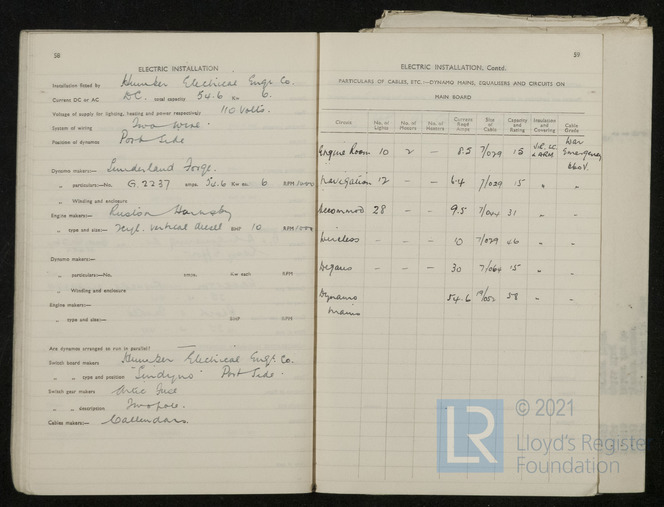 58
ELECTRIC INSTALLATION
Installation fitted by Humber Electrical Engr. Co.
Current DC or AC DC. total capacity 54.6 Kw 6.
Voltage of supply for lighting, heating and power respectively 110 Volts.
System of wiring Two wire.
Position of dynamos Port Side
Dynamo makers:— Sunderland Forge.
„ particulars:—No. G.2237 amps. 54.6 Kw ea. 6 RPM
„ Winding and enclosure
Engine makers:— Ruston Hornsby
„ type and size:— vertical diesel BHP 10 RPM
Dynamo makers:—
„ particulars:—No. amps. Kw each RPM
„ Winding and enclosure
Engine makers:—
„ type and size:— BHP RPM
Are dynamos arranged to run in parallel?
Switch board makers Humber Electrical Engr. Co.
„ „ type and position "Sindyno" Port Side.
Switch gear makers Artic Fuse
„ „ description Two pole.
Cables makers:— Callendars.
59
ELECTRIC INSTALLATION. Contd.
PARTICULARS OF CABLES, ETC.—DYNAMO MAINS, EQUALISERS AND CIRCUITS ON
MAIN BOARD
Circuit No. of Lights No. of Motors No. of Heaters Current Reqd Amps Size of Cable Capacity and Rating Insulation and Covering Cable Grade
Engine Room 10 2 – 8.5 7/029 15 V.R. LC. & ARM. War Emergency 660V.
Navigation 12 – – 6.4 7/029 15 „ „
Accommod 28 – – 9.5 7/044 31 „ „
Wireless – – – 10 7/029 „ „
Degaus – – – 30 7/064 „ „
Dynamo Mains 54.6 19/052 58 „ „
LR
© 2021
Lloyd's Register
Foundation